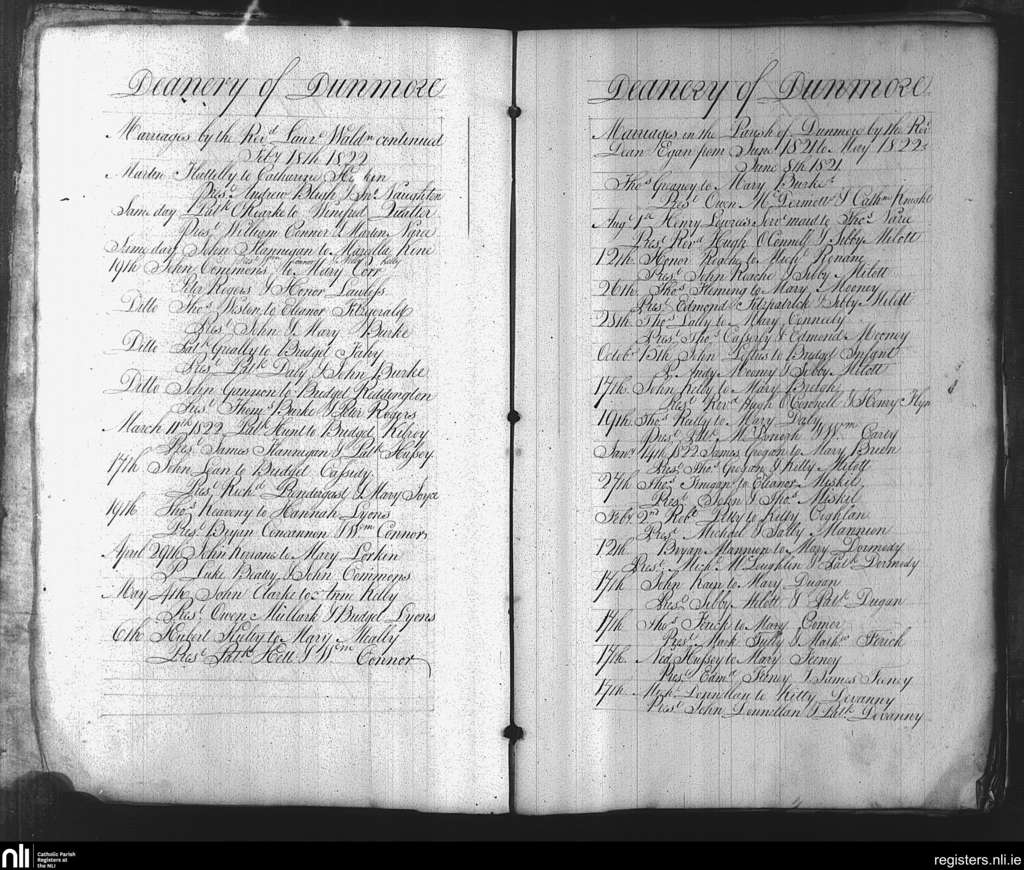 Deanery of Dunmore
Marriages by the Revd Laurc Waldn continued
Feby 18th 1822
Martin Hottilly to Catharine
Prest Andrew Bligh & Jno. Naughton
Same day Patk O'Rearke to Winefred Qualter
Prest William Connor & Martin Vyne
Same day John Flannigan to Marella Kine
Prest Wm Connor & Kelly
19th John Commons to Mary Corr
Peter Rogers & Honor Lawless
Ditto Thos Weston to Eleanor Fitzgerald
Prest John & Mary Burke
Ditto Patk Greally to Bridget Fahy
Prest Patk Daly & John Burke
Ditto John Gannon to Bridget Reddington
Prest Thoms Burke & Peter Rogers
March 11th 1822 Patk Hunt to Bridget Kilroy
Prest James Flannegan & Patk Hussoy
17th John Jean to Bridget Cassidy
Prest Richd Prendergast & Mary Joyce
19th Thos Keaveny to Hannah Lyons
Prest Bryan Concannon & Wm Connor
April 29th John Kirrans to Mary Lorkin
P Luke Beatty & John Commons
May 4th John Clarke to Ann Kelly
Prest Owen Mullark & Bridget Lyons
6th Hubert Kielty to Mary Meally
Prest Patk Hett & Wm Connor
Deanery of Dunmore
Marriages in the Parish of Dunmore by the Revd
Dean Egan from June 1821 to May 1822
June 8th 1821
Thos Geaney to Mary Burke
Prest Owen McDermott & Cathn Knight
Augt 1st Henry Servt maid to Thos Vane
Prest Revd Hugh O'Connell & Sibby Milott
12th Honor Roache to Michl Ronane
Prest John Roache & Sibby Milott
26th Thos Fleming to Mary Mooney
Prest Edmond Fitzpatrick & Sibby Milott
28th Thos Lally to Mary Connedy
Prest Thos Casserly & Edmond Mooney
Octobr 15th John Loftus to Bridget Infant
P Andy Mooney & Sibby Milott
17th John Kelly to Mary Birch
Prest Revd Hugh O'Connell & Henry
19th Thos Reilly to Mary Daly
Prest Patk McDonogh & Wm Carty
Jany 14th 1822 James Grogan to Mary Brien
Prest Thos Grogan & Kitty Milott
27th Thos Finigan to Eleanor Miskel
Prest John & Thos Miskel
Feby 2nd Robt Petty to Kitty Coghlan
Prest Michael & Sally Mannion
12th Bryan Mannion to Mary Dormedy
Prest Michl McLoughlin & Patk Dormedy
17th John Kain to Mary Dugan
Prest Sibby Milott & Patk Dugan
17th Thos Forick to Mary Comer
Prest Mark Tully & Mathw Forick
17th Ned Hussey to Mary Feeney
Prest Edmd Feeney & James Feeney
17th Michl Donnellan to Kitty Devanny
Prest John Donnellan & Patk Devanny
nli
Catholic Parish
Registers at
the NLI
registers.nli.ie